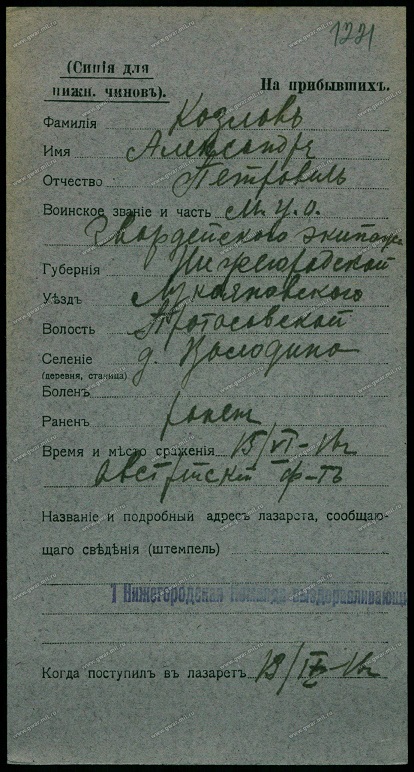 1221
(Синія для
нижн. чиновъ).
На прибывшихъ.
Фамилія Козловъ
Имя Александръ
Отчество Петровичъ
Воинское званіе и часть м. у. о.
Гвардейского экипажа
Губернія Нижегородской
Уѣздъ Лукояновского
Волость Протасовской
Селеніе д.
(деревня, станица)
Боленъ
Раненъ ранен
Время и мѣсто сраженія 15/VI-16г
Австрійскій ф-тъ
Названіе и подробный адресъ лазарета, сообщаю-
щаго свѣдѣнія (штемпель)
1 Нижегородская Команда выздоравливающи
Когда поступилъ въ лазаретъ 13/IX-16г
www.gwar.mil.ru